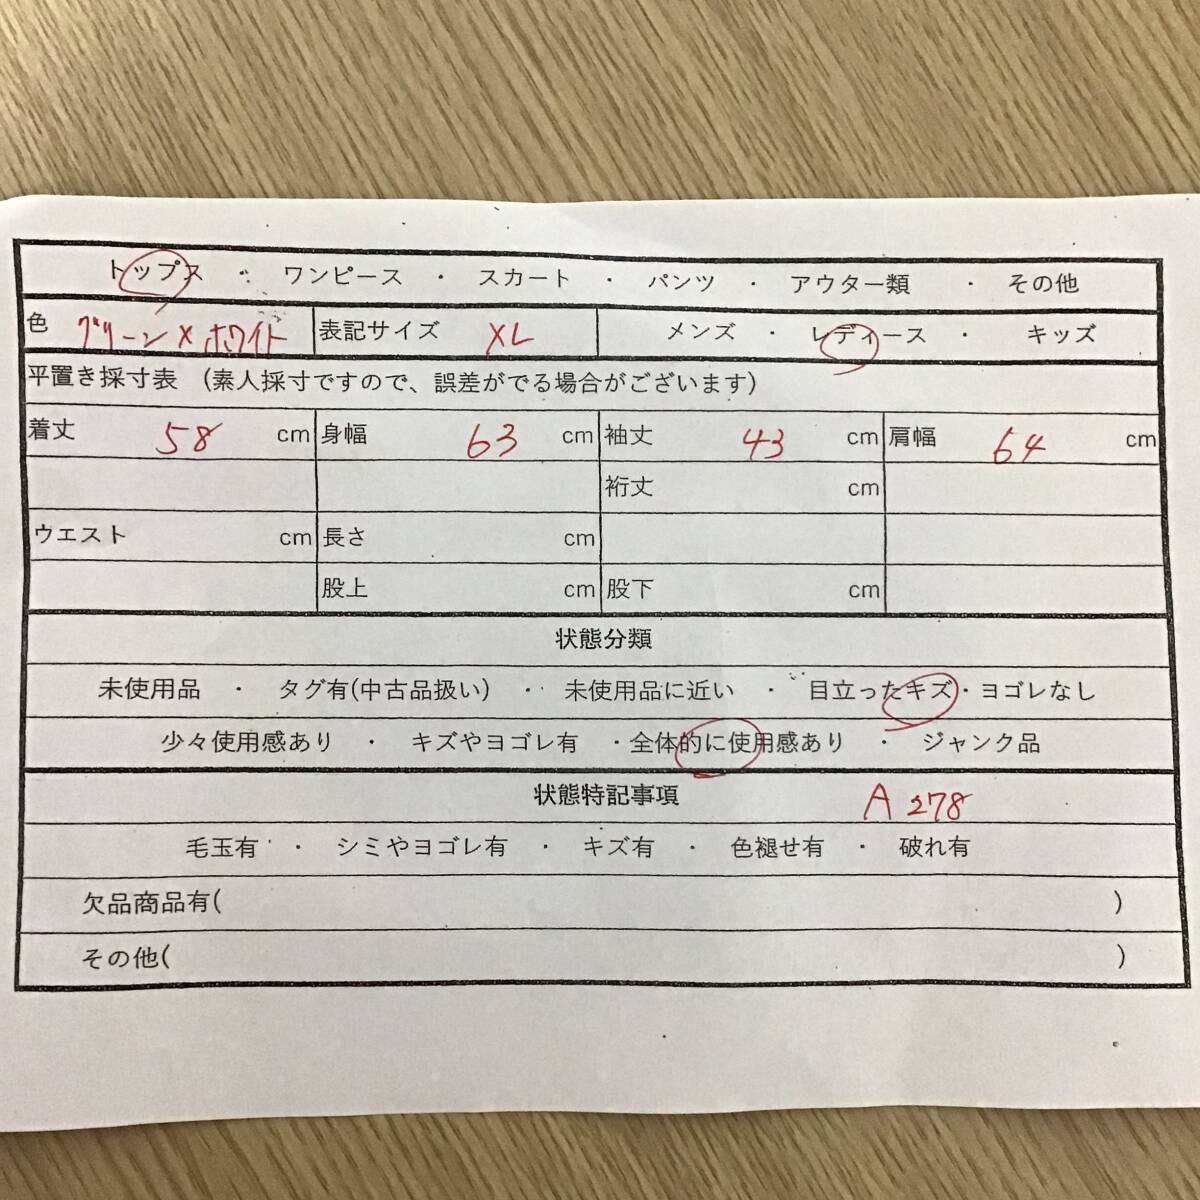 トップス ・ ワンピース ・ スカート ・ パンツ ・ アウター類 ・ その他
色 グリーン×ホワイト 表記サイズ XL メンズ ・ レディース ・ キッズ
平置き採寸表 (素人採寸ですので、誤差がでる場合がございます)
着丈 58 cm 身幅 63 cm 袖丈 43 cm 肩幅 64 cm
裄丈 cm
ウエスト cm 長さ cm
股上 cm 股下 cm
状態分類
未使用品 ・ タグ有(中古品扱い) ・ 未使用品に近い ・ 目立ったキズ・ヨゴレなし
少々使用感あり ・ キズやヨゴレ有 ・全体的に使用感あり ・ ジャンク品
状態特記事項 A 278
毛玉有 ・ シミやヨゴレ有 ・ キズ有 ・ 色褪せ有 ・ 破れ有
欠品商品有( )
その他( )